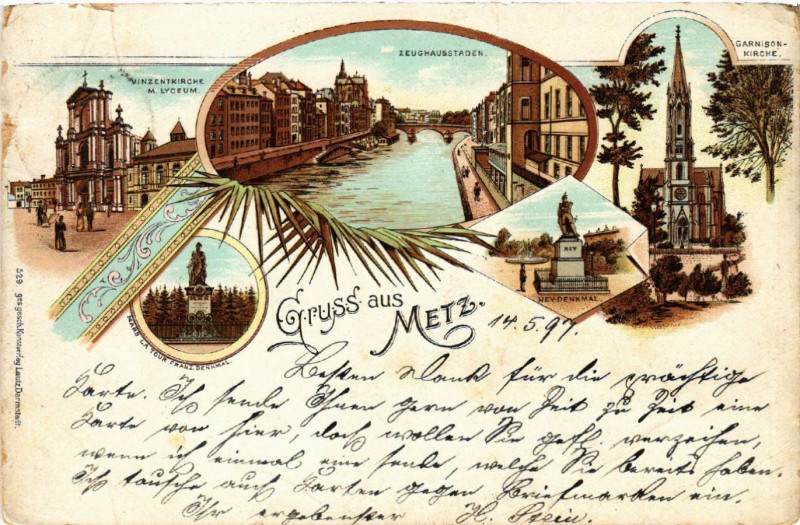 ZEUGHAUSSTADEN.
GARNISON-
KIRCHE.
VINZENTKIRCHE
M. LYCEUM.
NEY
NEY-DENKMAL.
MARS LA TOUR FRANZ. DENKMAL.
Gruss aus
METZ.
14.5.97.
529 ges. gesch. Kunstverlag Lautz Darmstadt.
Besten Dank für die prächtige
Karte. Ich sende Ihnen gern von Zeit zu Zeit eine
Karte von hier, doch wollen Sie gefl. verzeihen,
wenn ich einmal eine sende, welche Sie bereits haben.
Ich tausche auch Karten gegen Briefmarken ein.
Ihr ergebenster H. Stein.